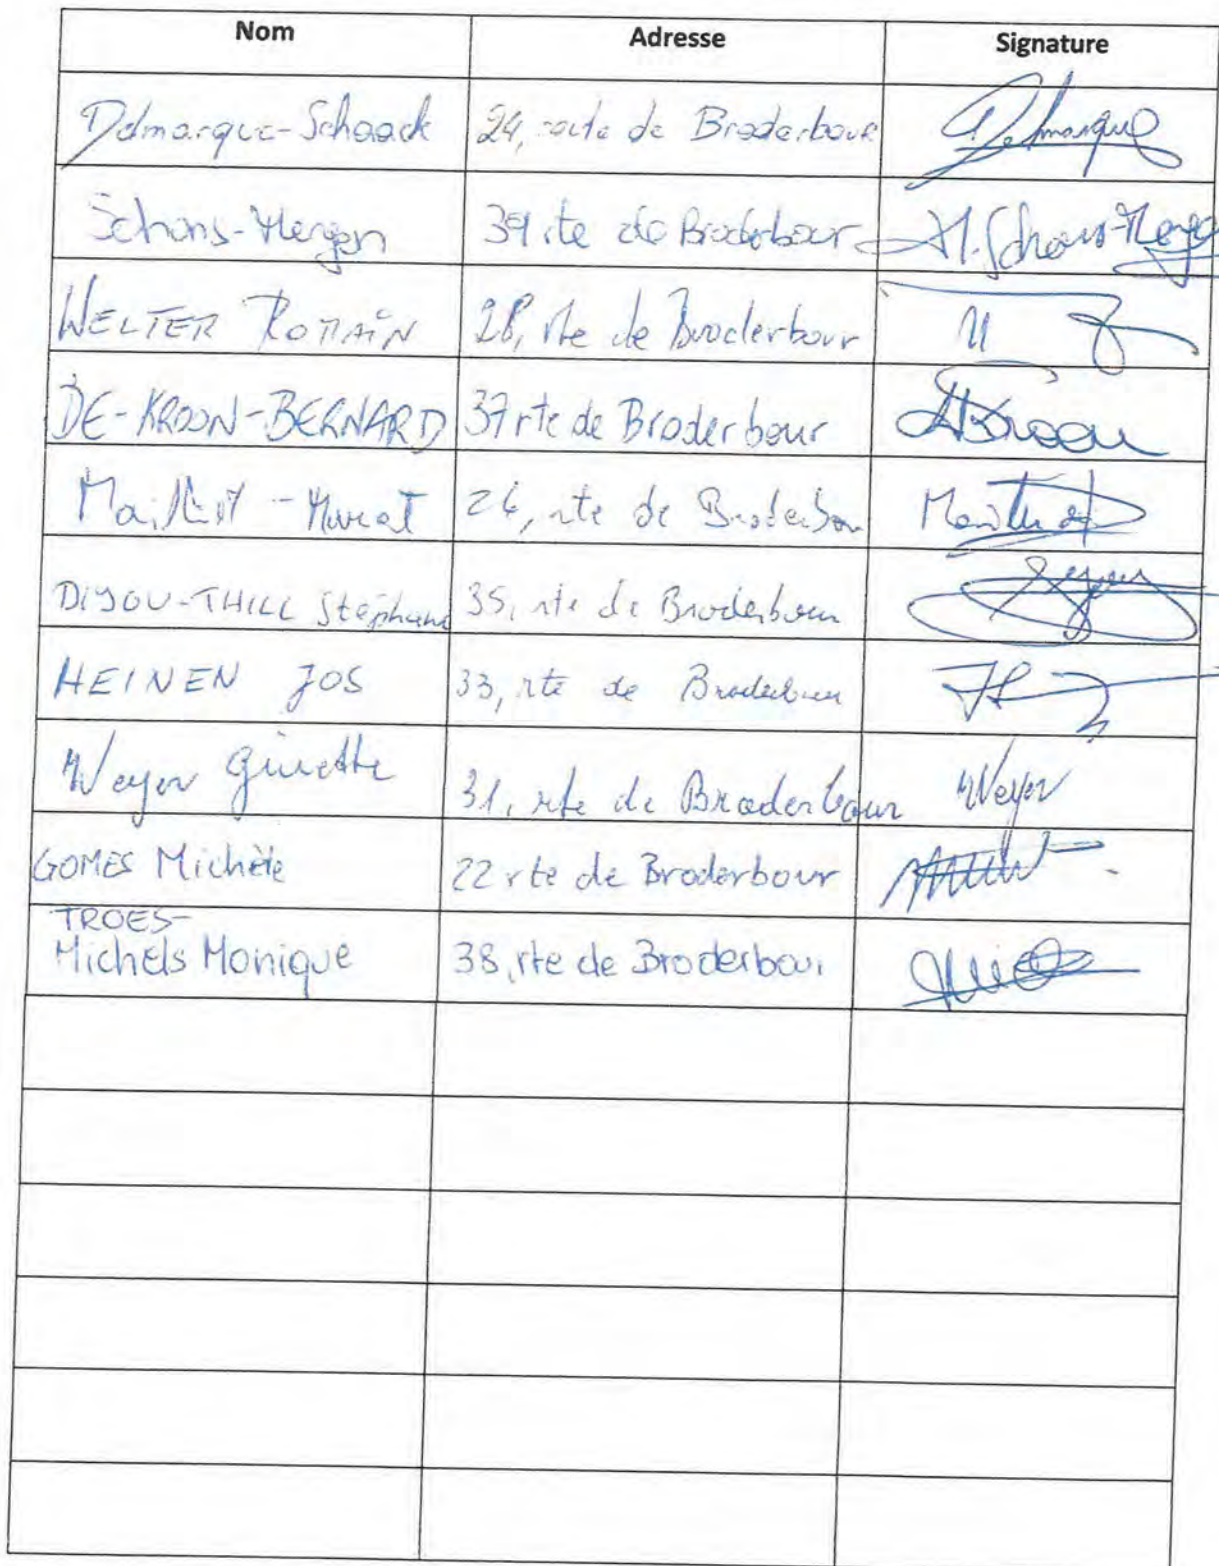 Nom Adresse Signature
Delmarque-Schaack 24, route de Broderbour Delmarque
Schons-Meyen 39 rte de Broderbour M. Schons-Meyen
WELTER ROMAIN 28, rte de Broderbour
DE-KROON-BERNARD 37 rte de Broderbour
24, rte de Broderbour
DIJOU-THILL Stéphane 35, rte de Broderbour
HEINEN JOS 33, rte de Broderbour
Weyer Ginette 31, rte de Broderbour Weyer
GOMES Michèle 22 rte de Broderbour
TROES-
Michels Monique 38, rte de Broderbour